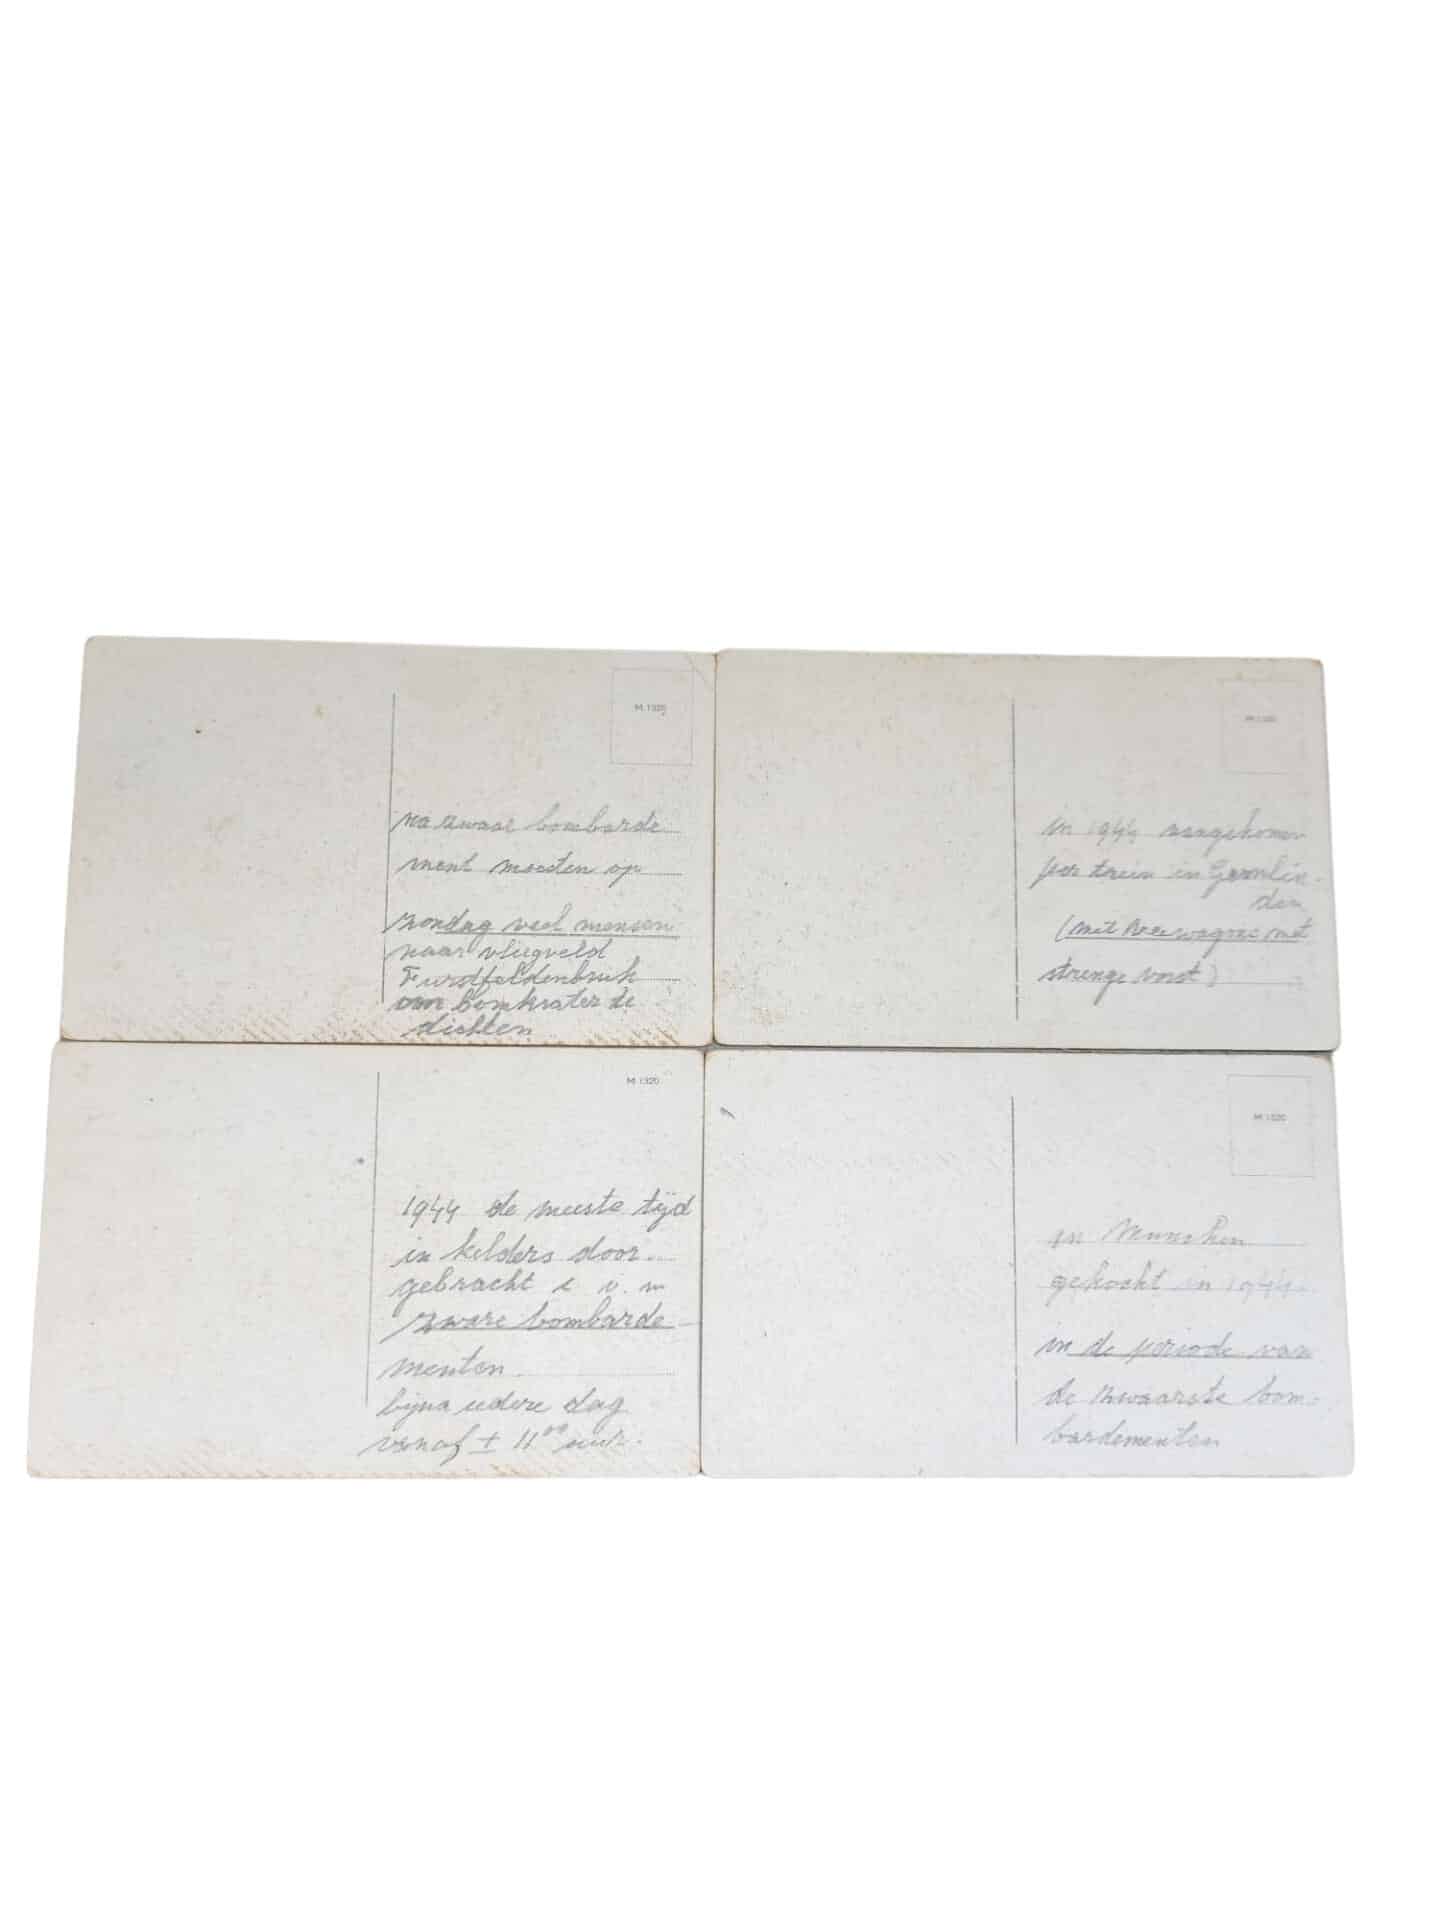 M. 1320
na zwaar bombarde
ment moesten op
zondag veel mensen
naar vliegveld
Furstfeldenbruk
om bomkrater de
dichten
M. 1320
in 1944 aangekomen
per trein in Germlin-
den
(mit vee wagens met
strenge vorst)
M 1320
1944 de meeste tijd
in kelders door-
gebracht i. v. m
zware bombarde-
menten.
bijna iedere dag
vanaf ± 11⁰⁰ uur.
M 1320
in Munchen
gekocht in 1944
in de periode van
de zwaarste bom-
bardementen